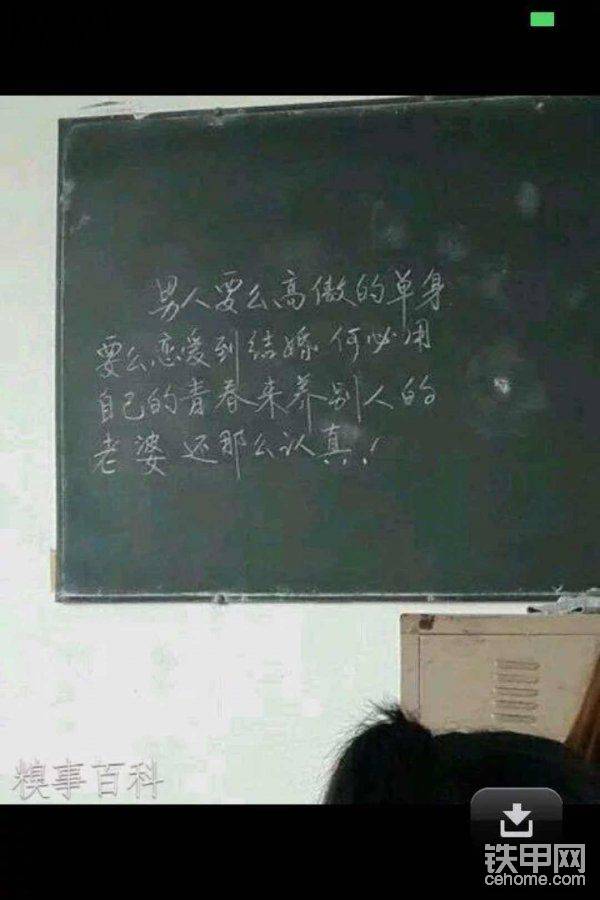 男人要么高傲的单身
要么恋爱到结婚何必用
自己的青春来养别人的
老婆还那么认真!
糗事百科
铁甲网
cehome.com